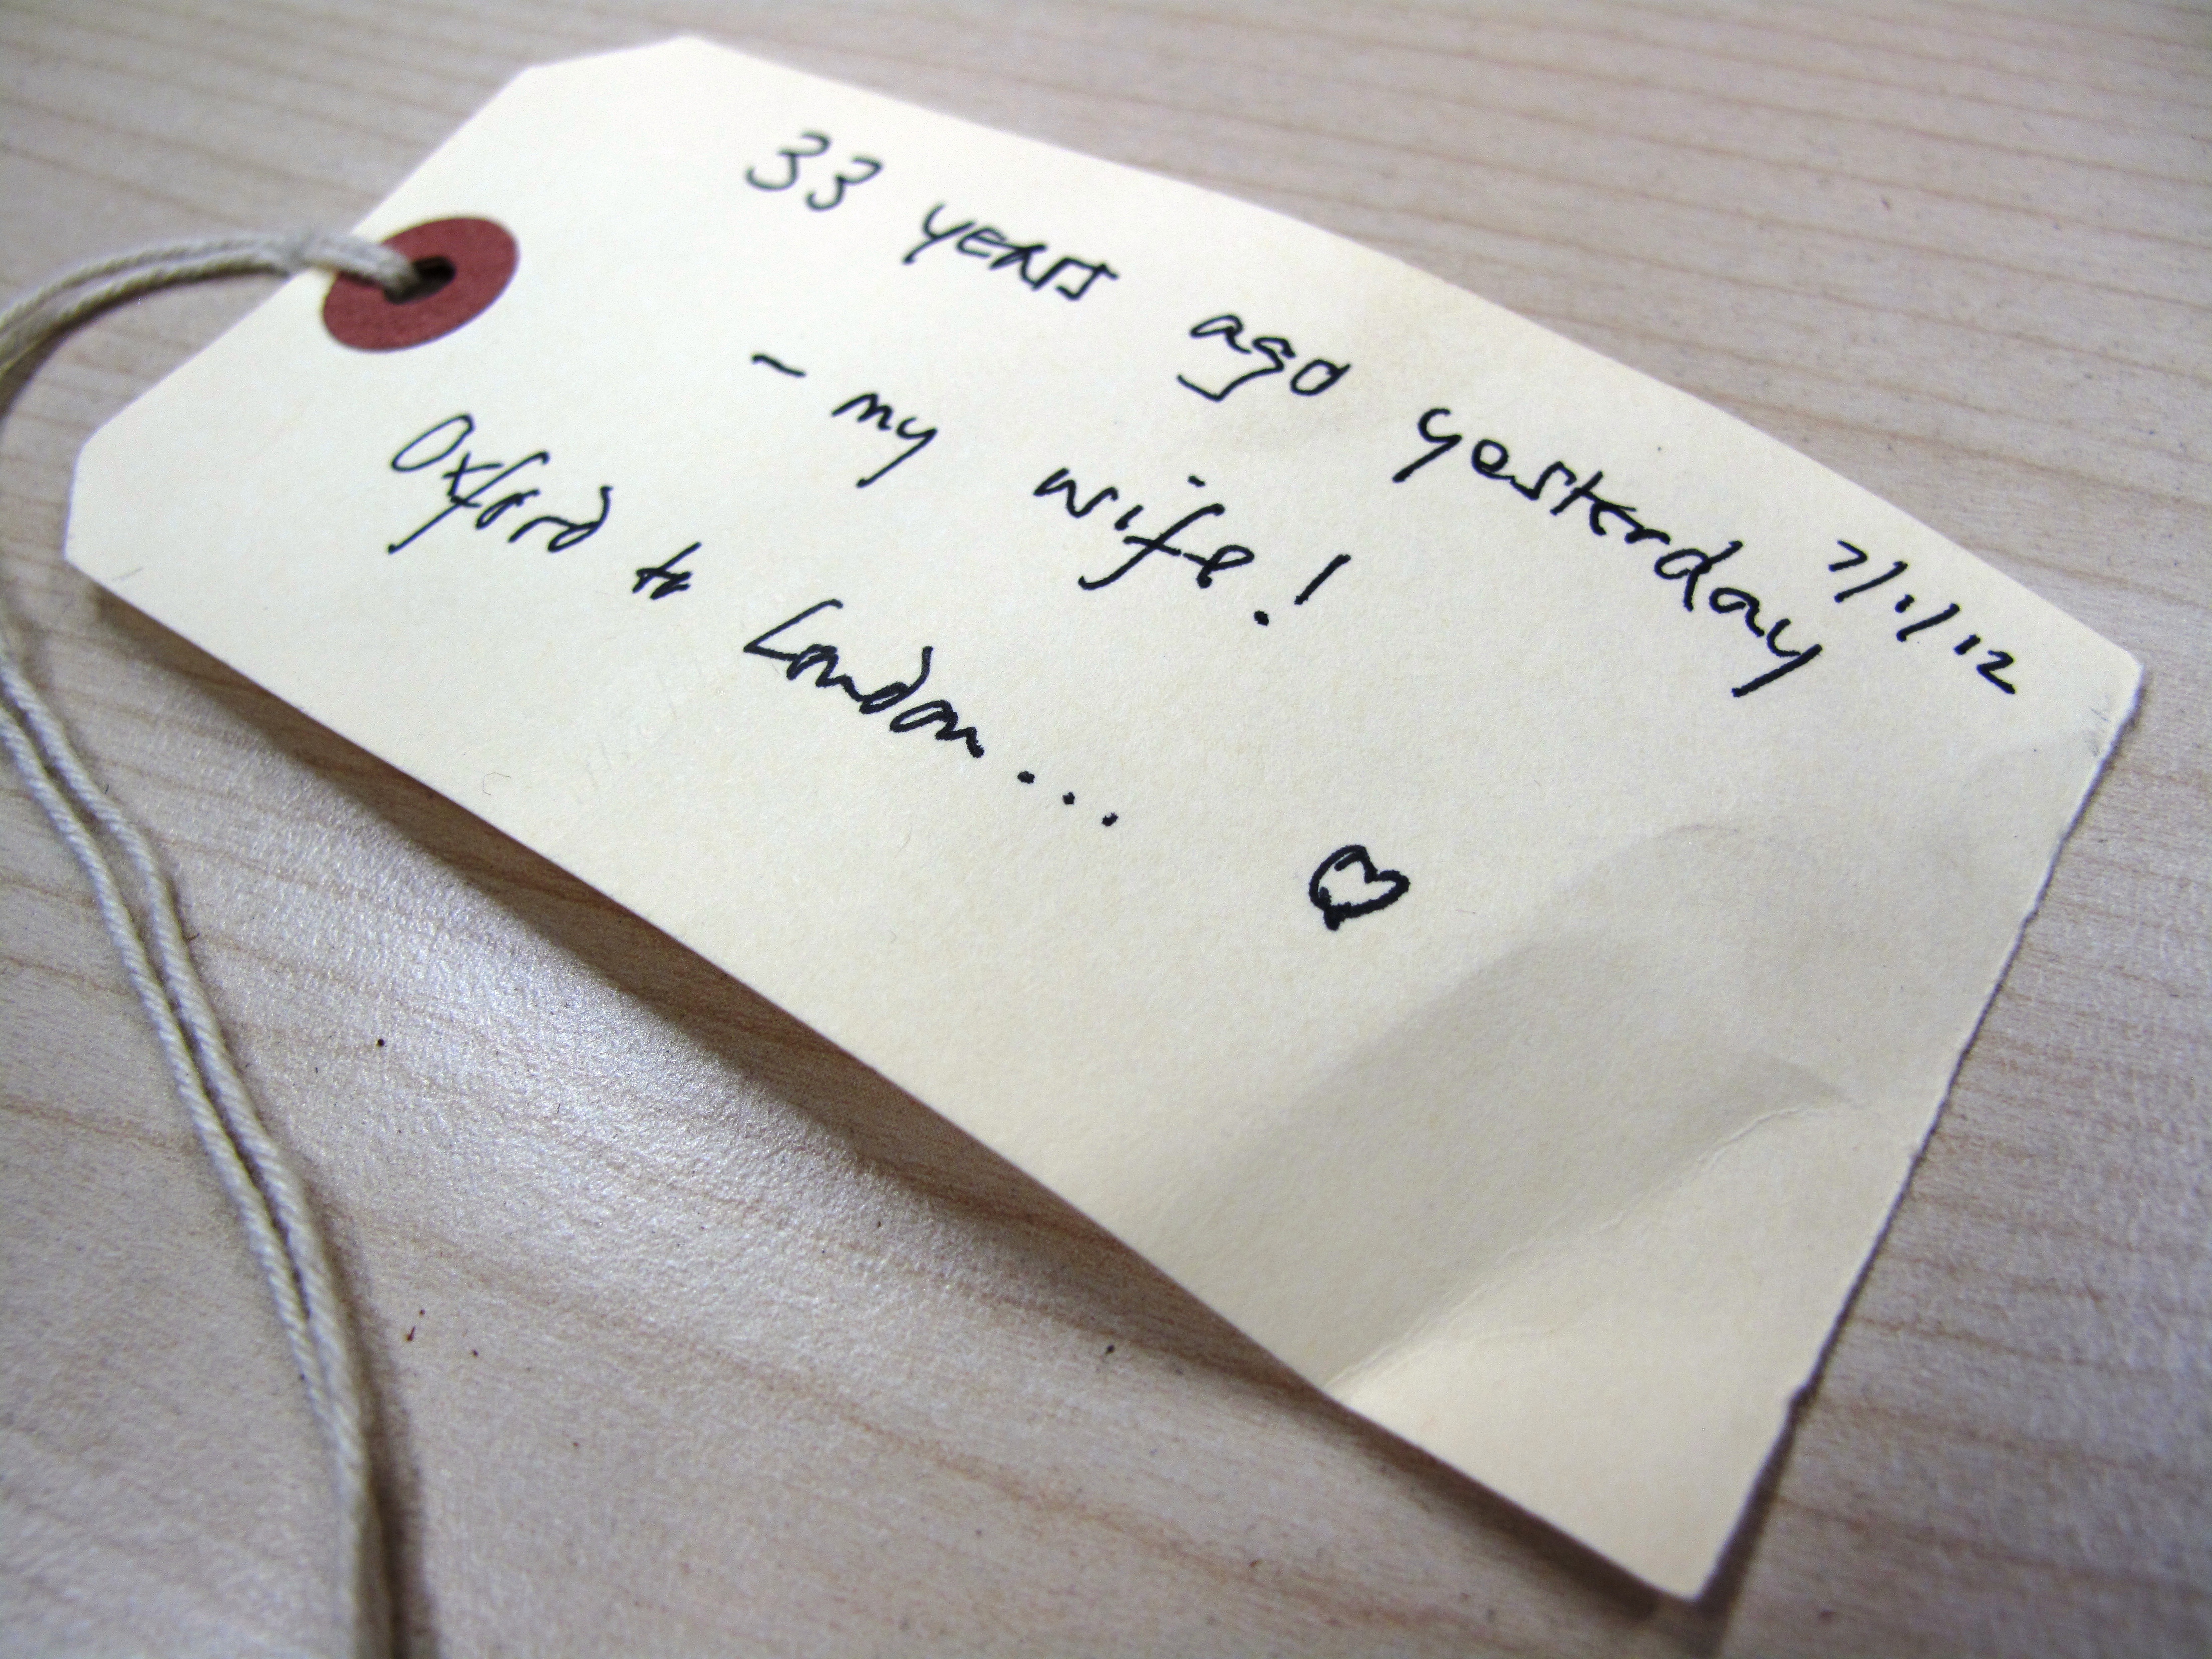 7/1/12
33 years ago yesterday
- my wife!
Oxford to London...